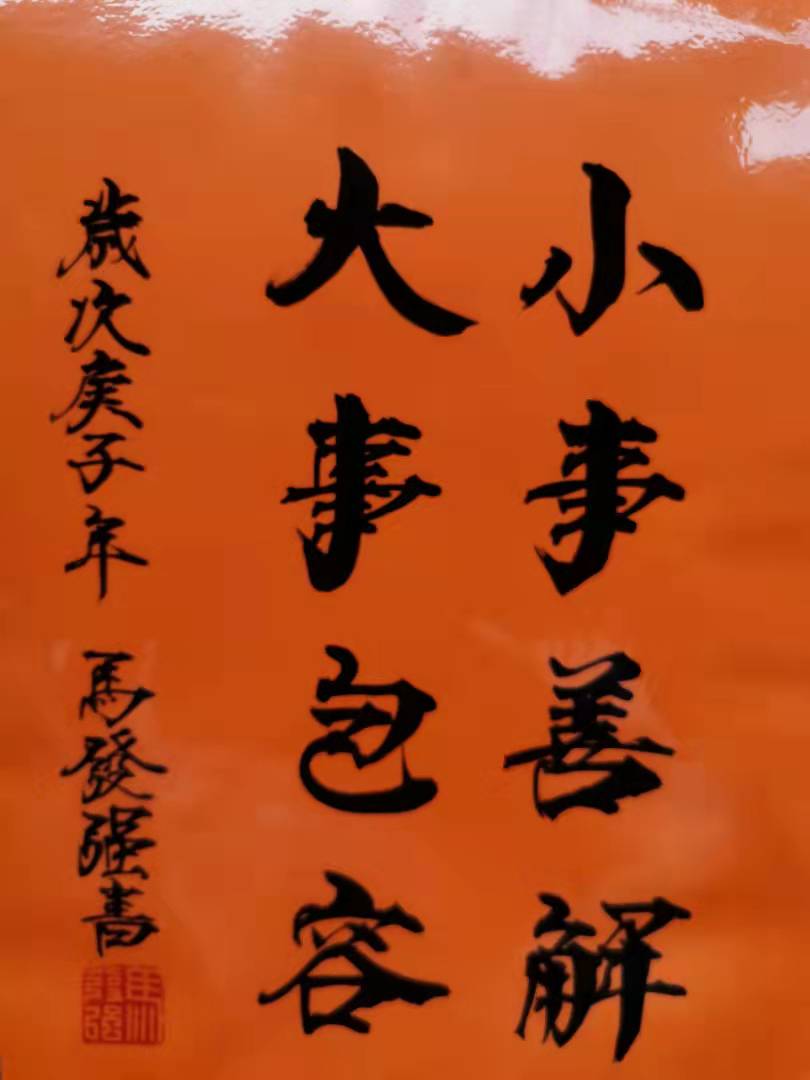 小事善解
大事包容
歲次庚子年 馬發强書